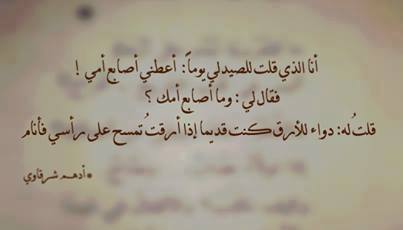 أنا الذي قلت للصيدلي يوماً: أعطني أصابع أمي !
فقال لي : وما أصابع أمك ؟
قلتُ له: دواء للأرق كنت قديما إذا أرقتُ تمسح على رأسي فأنام
*أدهم شرقاوي